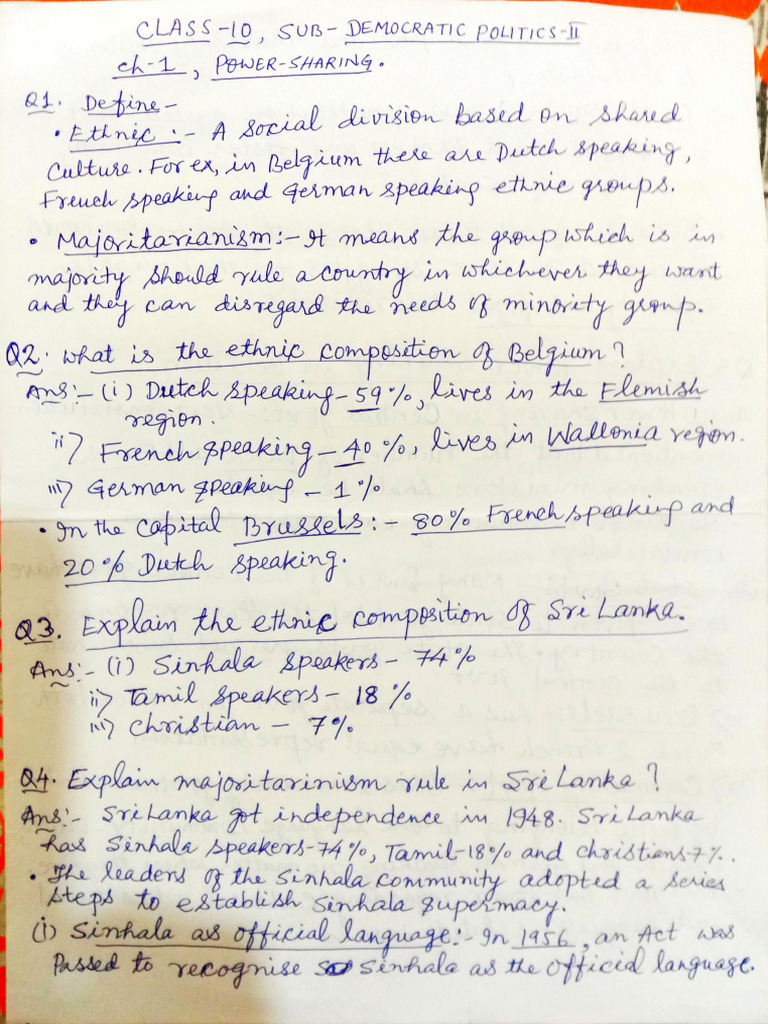 CLASS-10, SUB- DEMOCRATIC POLITICS-II
ch-1, POWER-SHARING.
Q1. Define-
• Ethnic :- A social division based on shared
culture. For ex, in Belgium there are Dutch speaking,
French speaking and German speaking ethnic groups.
• Majoritarianism:- It means the group which is in
majority should rule a country in whichever they want
and they can disregard the needs of minority group.
Q2. what is the ethnic composition of Belgium?
Ans:- (i) Dutch speaking-59%, lives in the Flemish
region.
ii) French speaking-40%, lives in Wallonia region.
iii) German speaking-1%
• In the capital Brussels:- 80% French speaking and
20% Dutch speaking.
Q3. Explain the ethnic composition of Sri Lanka.
Ans:- (i) Sinhala speakers- 74%
ii) Tamil speakers- 18%
iii) Christian - 7%
Q4. Explain majoritarinism rule in Sri Lanka?
Ans:- Sri Lanka got independence in 1948. Sri Lanka
has Sinhala speakers-74%, Tamil-18% and christians-7%.
• The leaders of the Sinhala community adopted a series
steps to establish Sinhala supermacy.
(i) Sinhala as official language:- In 1956, an Act was
Passed to recognise Sinhala as the official language.